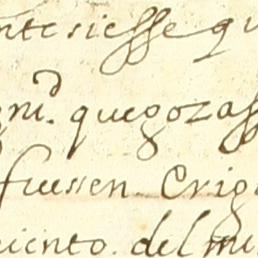 ntesiesse qu
niᵈ. que gozass
fuessen. Erig
miento. del mu